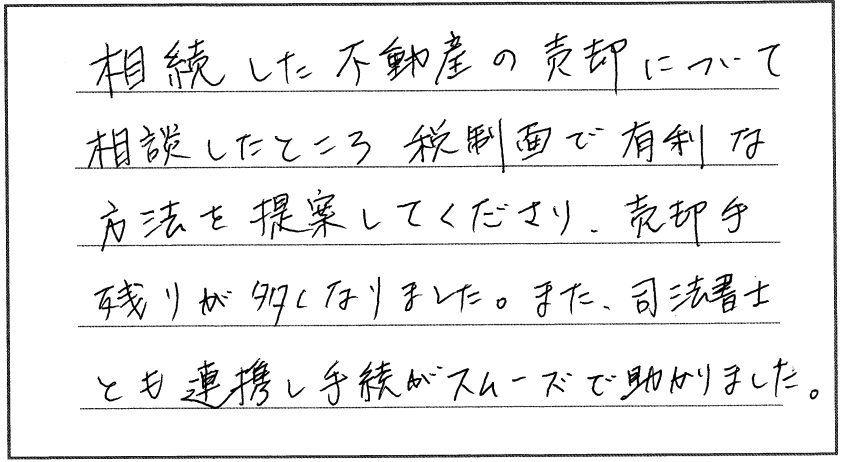 相続した不動産の売却について
相談したところ 税制面で有利な
方法を提案してくださり、売却手
残りが多くなりました。また、司法書士
とも連携し手続がスムーズで助かりました。